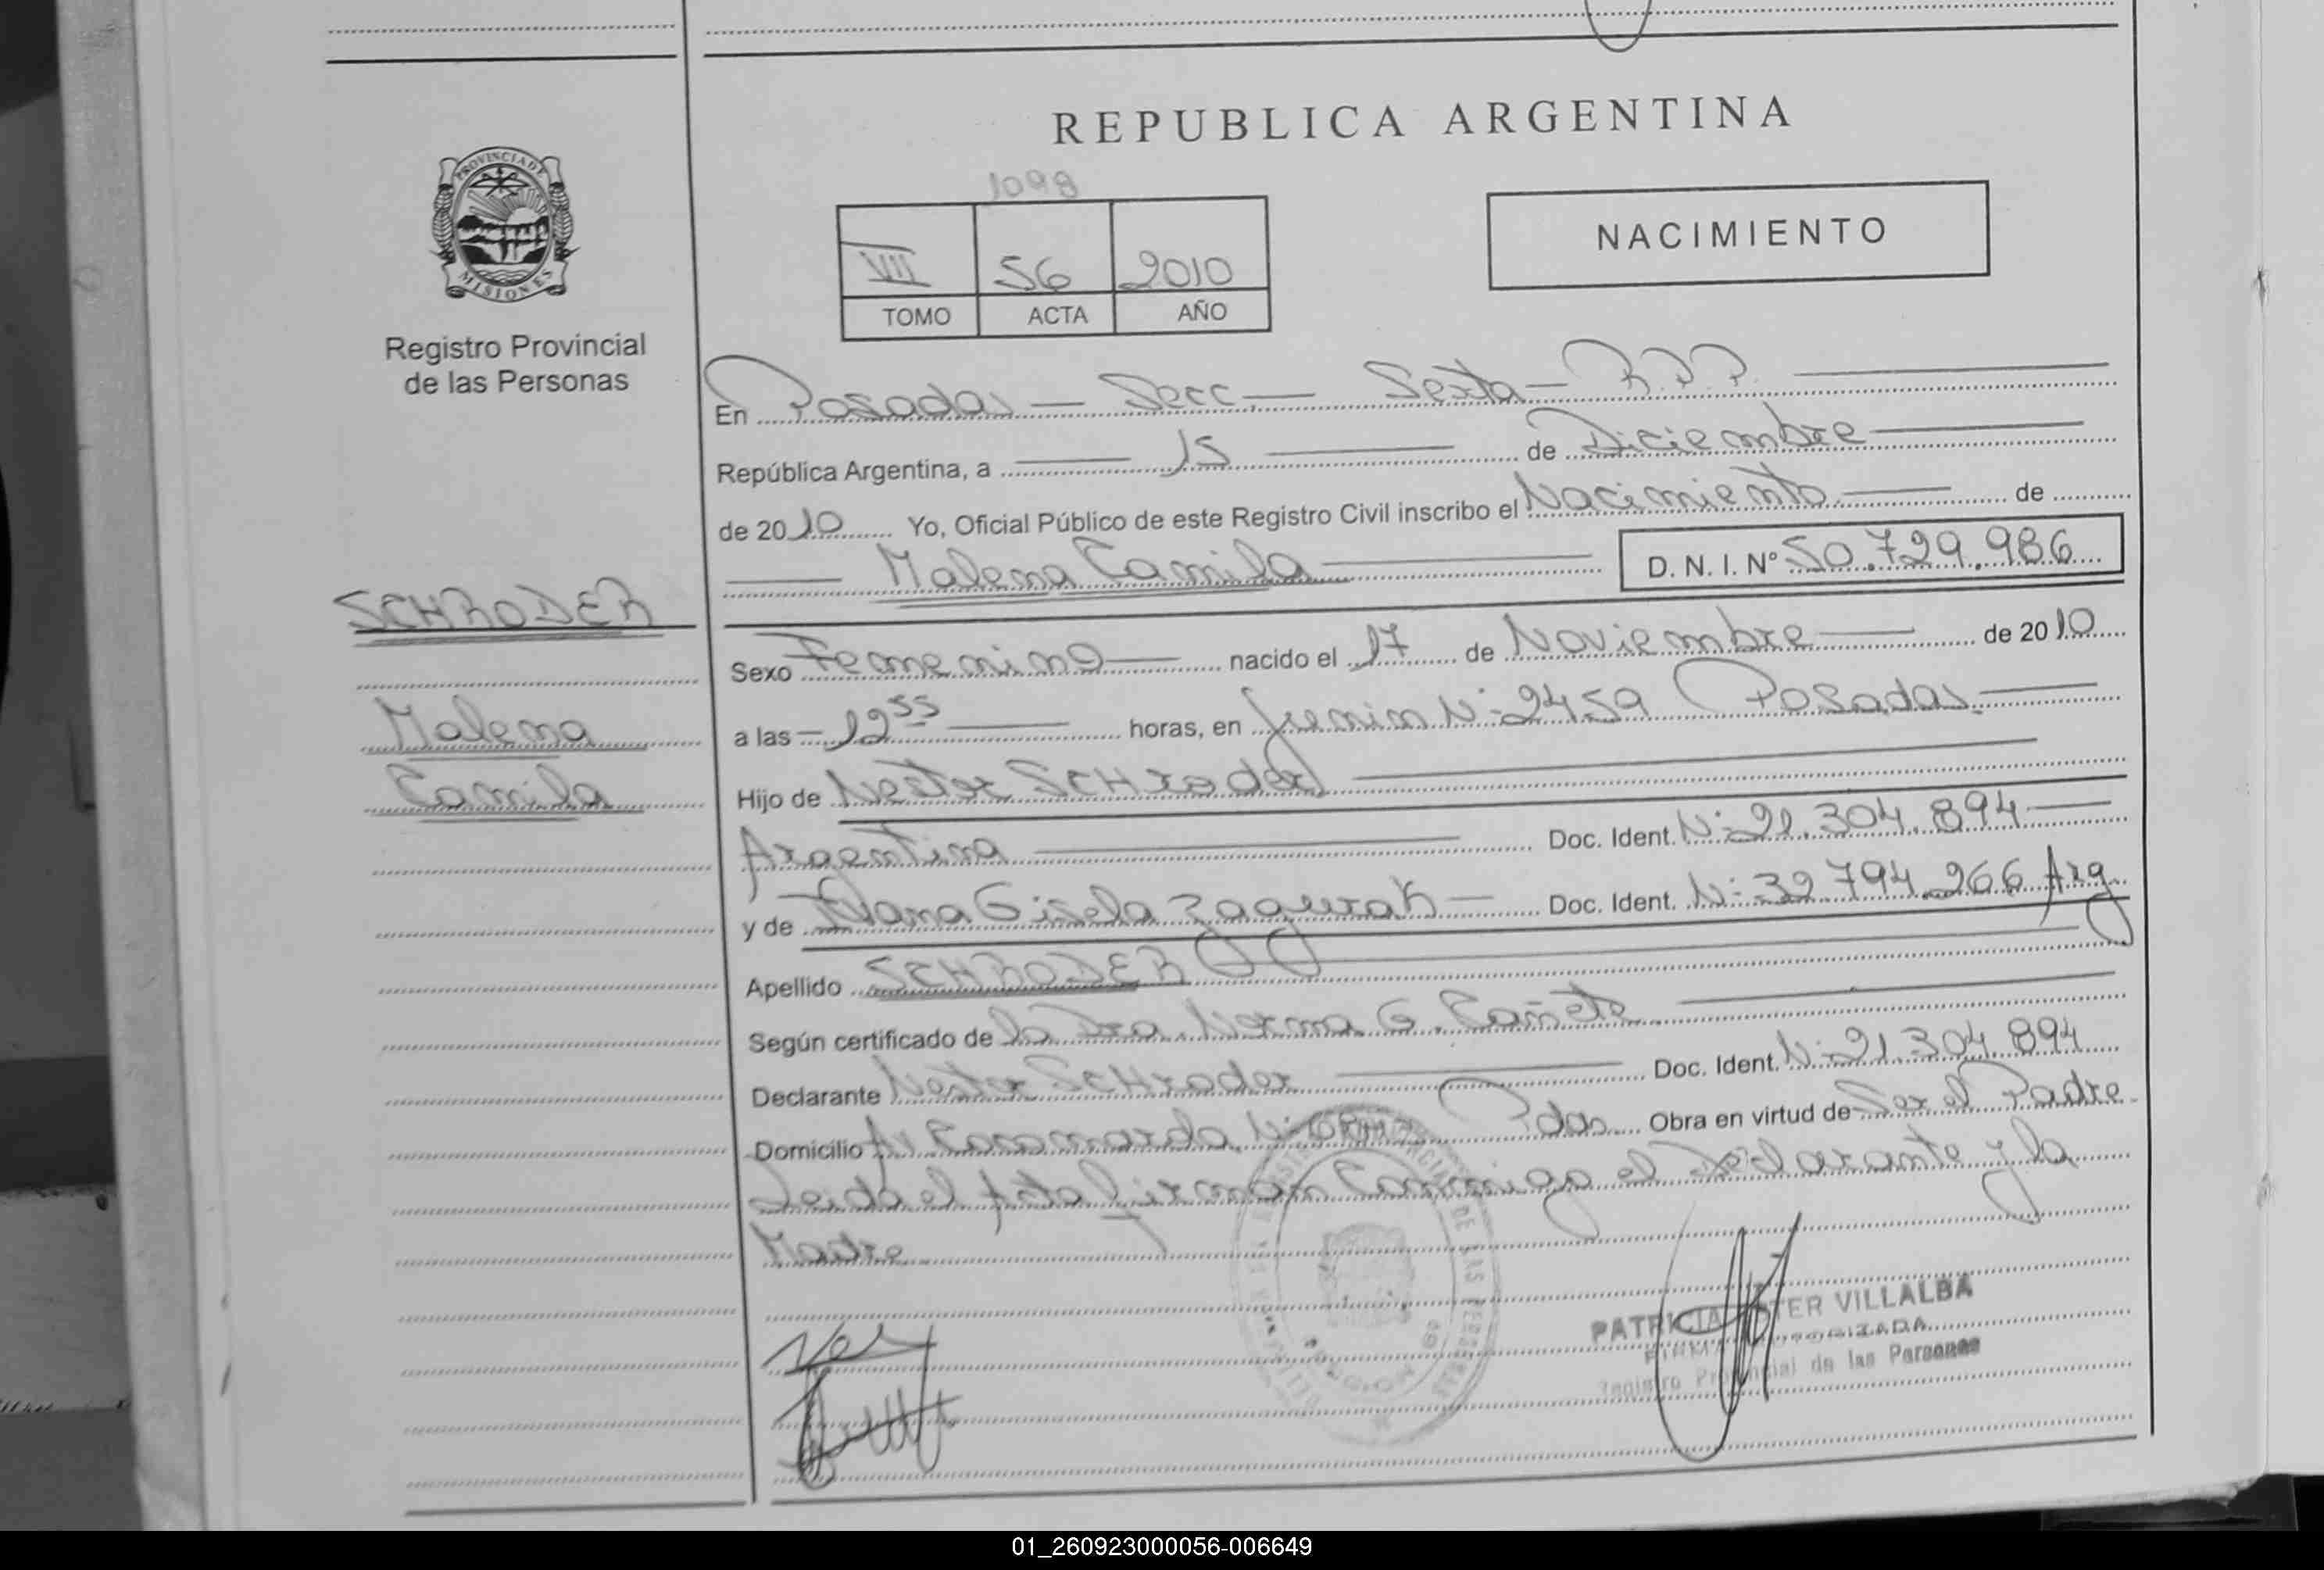 REPUBLICA ARGENTINA
PROVINCIA DE MISIONES
Registro Provincial
de las Personas
1098
VII 56 2010
TOMO ACTA AÑO
NACIMIENTO
En Posadas — Secc. — Sexta — R.P.P.
República Argentina, a 15 de Diciembre
de 2010 Yo, Oficial Público de este Registro Civil inscribo el Nacimiento de
Malena Camila D. N. I. Nº 50.729.986
SCHRODER
Malena
Camila
Sexo Femenino nacido el 17 de Noviembre de 2010
a las 12 55 horas, en Junin Nº 2459 Posadas.
Hijo de Nestor SCHroder
Argentina Doc. Ident. Nº 21.304.894
y de Gisela Zagurak Doc. Ident. Nº 32.794.266 Arg.
Apellido SCHRODER
Según certificado de la Dra. Norma G. Cañete
Declarante Nestor SCHroder Doc. Ident. Nº 21.304.894
Domicilio Av. Pdas. Obra en virtud de Ser el Padre
Leida el Acta firman Conmigo el Declarante y la
Madre
PATRICIA VILLALBA
FIRMA AUTORIZADA
Registro Provincial de las Personas
01_260923000056-006649